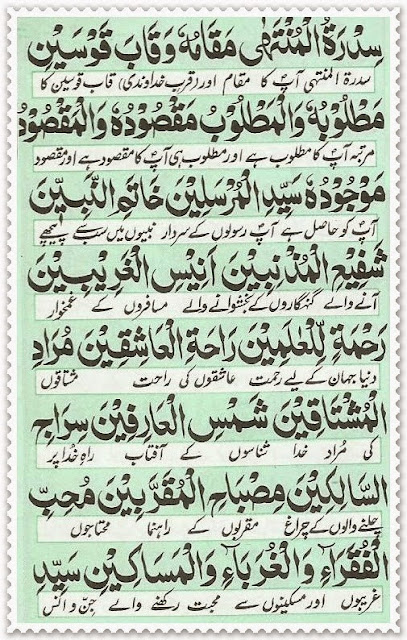 سِدْرَةُ الْمُنْتَهٰى مَقَامُهٗ وَقَابَ قَوْسَيْنِ
سدرۃ المنتہیٰ آپؐ کا مقام اور (قربِ خداوندی) قاب قوسین کا
مَطْلُوْبُهٗ وَالْمَطْلُوْبُ مَقْصُوْدُهٗ وَالْمَقْصُوْدُ
مرتبہ آپؐ کا مطلوب ہے اور مطلوب ہی آپؐ کا مقصود ہے اور مقصود
مَوْجُوْدُهٗ سَيِّدِ الْمُرْسَلِيْنَ خَاتِمِ النَّبِيِّيْنَ
آپؐ کو حاصل ہے آپؐ رسولوں کے سردار نبیوں میں سب سے پیچھے
شَفِيْعِ الْمُذْنِبِيْنَ اَنِيْسِ الْغَرِيْبِيْنَ
آنے والے گنہگاروں کے بخشوانے والے مسافروں کے غمخوار
رَحْمَةٍ لِّلْعٰلَمِيْنَ رَاحَةِ الْعَاشِقِيْنَ مُرَادِ
دنیا جہان کے لیے رحمت عاشقوں کی راحت مشتاقوں
الْمُشْتَاقِيْنَ شَمْسِ الْعَارِفِيْنَ سِرَاجِ
کی مُراد خدا شناسوں کے آفتاب راہِ خدا پر
السَّالِكِيْنَ مِصْبَاحِ الْمُقَرَّبِيْنَ مُحِبِّ
چلنے والوں کے چراغ مقربوں کے راہنما محتاجوں
الْفُقَرَآءِ وَالْغُرَبَآءِ وَالْمَسَاكِيْنِ سَيِّدِ
غریبوں اور مسکینوں سے محبت رکھنے والے جِنّ و انس